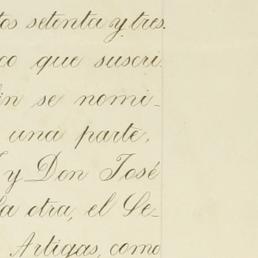 tos setenta y tres.
co que suscri
fin se nomi-
una parte,
y Don José
la otra, el Se-
Artigas, como